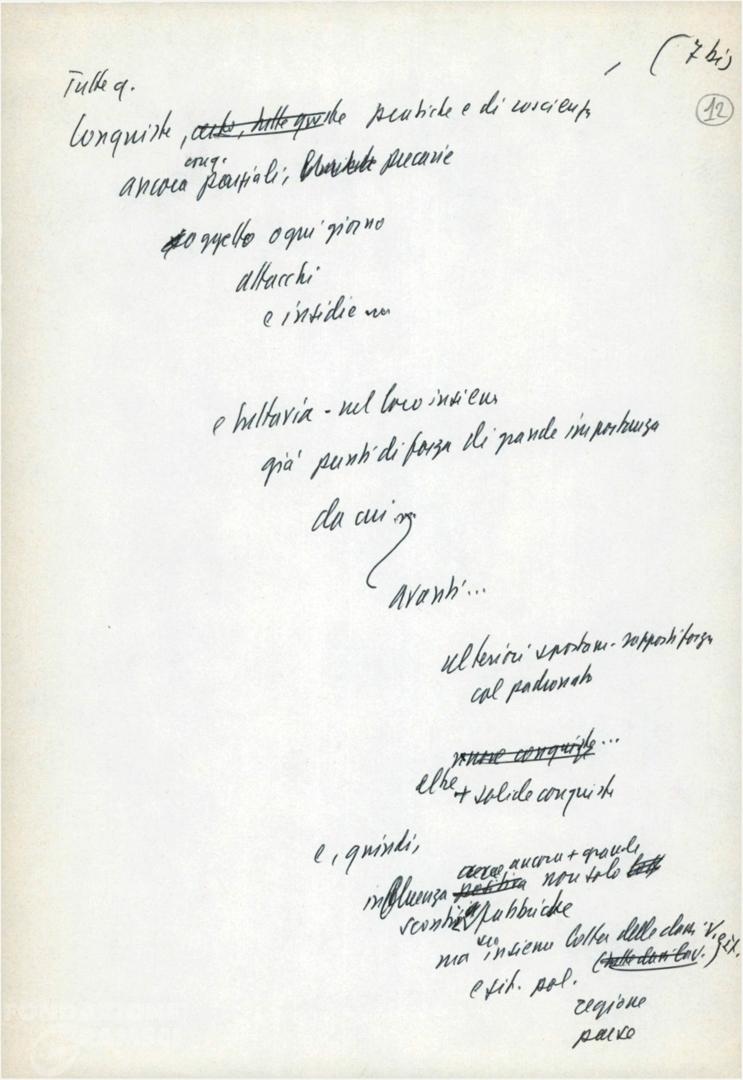 (7 bis
12
Tutte q.
Conquiste, certo, tutte queste pratiche e di coscienza
conq.
ancora parziali, precarie
soggette ogni giorno
attacchi
e insidie
e tuttavia - nel loro insieme
già punti di forza di grande importanza
da cui
avanti...
ulteriori spostam. rapporti forza
col padronato
nuove conquiste...
altre + solide conquiste
e, quindi,
avere ancora + grande
influenza politica non solo
fabbriche
ma su insieme lotta delle classi
(tutte classi lav.)
e sit. pol.
regione
paese
FONDAZIONE